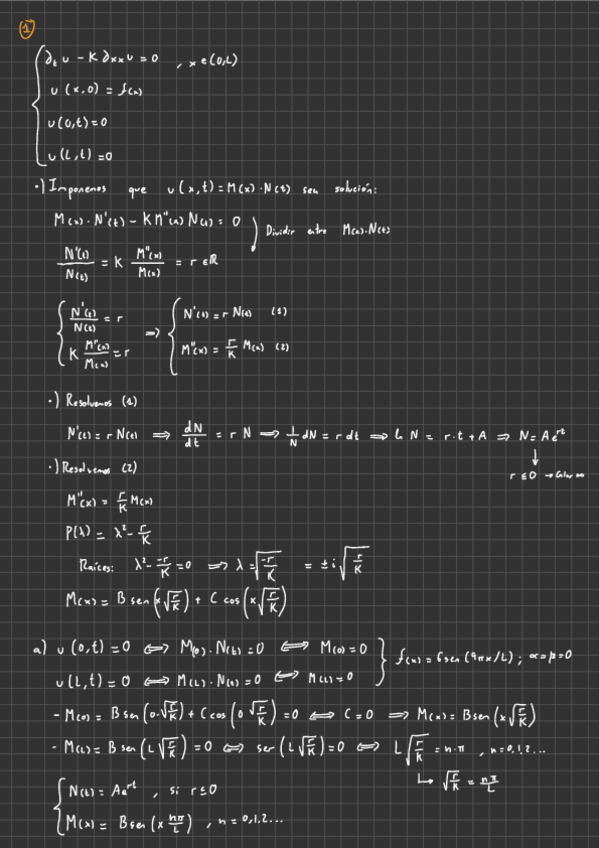 1
∂t u - K ∂xx u = 0 , x ∈ (0,L)
u (x,0) = f(x)
u(0,t) = 0
u(L,t) = 0
·) Imponemos que u(x,t) = M(x)·N(t) sea solución:
M(x)·N'(t) - K M''(x) N(t) = 0
Dividir entre M(x)·N(t)
N'(t)/N(t) = K M''(x)/M(x) = r ∈ ℝ
N'(t)/N(t) = r
K M''(x)/M(x) = r
=> N'(t) = r N(t) (1)
M''(x) = r/K M(x) (2)
·) Resolvemos (1)
N'(t) = r N(t) => dN/dt = r N => 1/N dN = r dt => ln N = r·t + A => N = A e^rt
r ≤ 0 → Calor
·) Resolvemos (2)
M''(x) = r/K M(x)
P(λ) = λ² - r/K
Raíces: λ² - -r/K = 0 => λ = √(-r/K) = ± i √(r/K)
M(x) = B sen(x√(r/K)) + C cos(x√(r/K))
a) u(0,t) = 0 <=> M(0)·N(t) = 0 <=> M(0) = 0
u(L,t) = 0 <=> M(L)·N(t) = 0 <=> M(L) = 0
f(x) = 6 sen(9πx/L) ; α=β=0
- M(0) = B sen(0·√(r/K)) + C cos(0√(r/K)) = 0 <=> C = 0 => M(x) = B sen(x√(r/K))
- M(L) = B sen(L√(r/K)) = 0 <=> sen(L√(r/K)) = 0 <=> L√(r/K) = n·π , n = 0,1,2...
↳ √(r/K) = nπ/L
N(t) = A e^rt , si r ≤ 0
M(x) = B sen(x nπ/L) , n = 0,1,2...